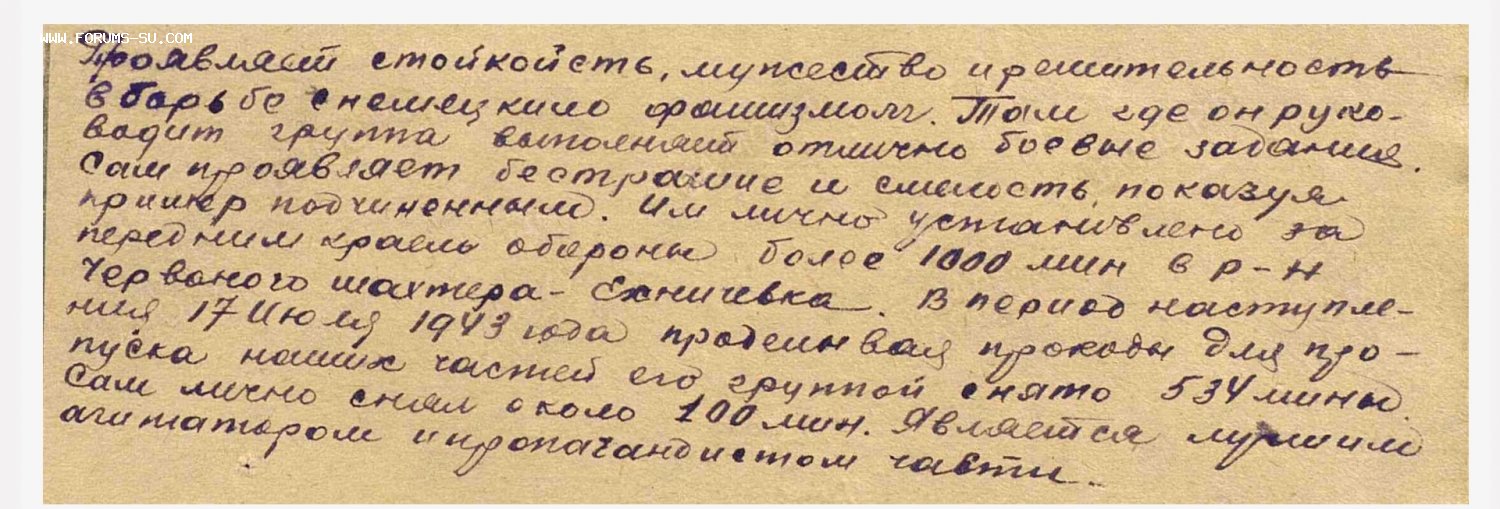 WWW.FORUMS-SU.COM
Проявляет стойкойсть, мужество и решительность
в борьбе с немецким фашизмом. Там где он руко-
водит группа выполняет отлично боевые задания.
Сам проявляет бестрашие и смелость, показуя
пример подчиненным. Им лично установлено за
передним краем обороны более 1000 мин в р-н
Червоного шахтера - Ехничевка. В период наступле-
ния 17 Июля 1943 года проделывая проходы для про-
пуска наших частей его группой снято 534 мины.
Сам лично снял около 100 мин. Является лучшим
агитатором и пропагандистом части.